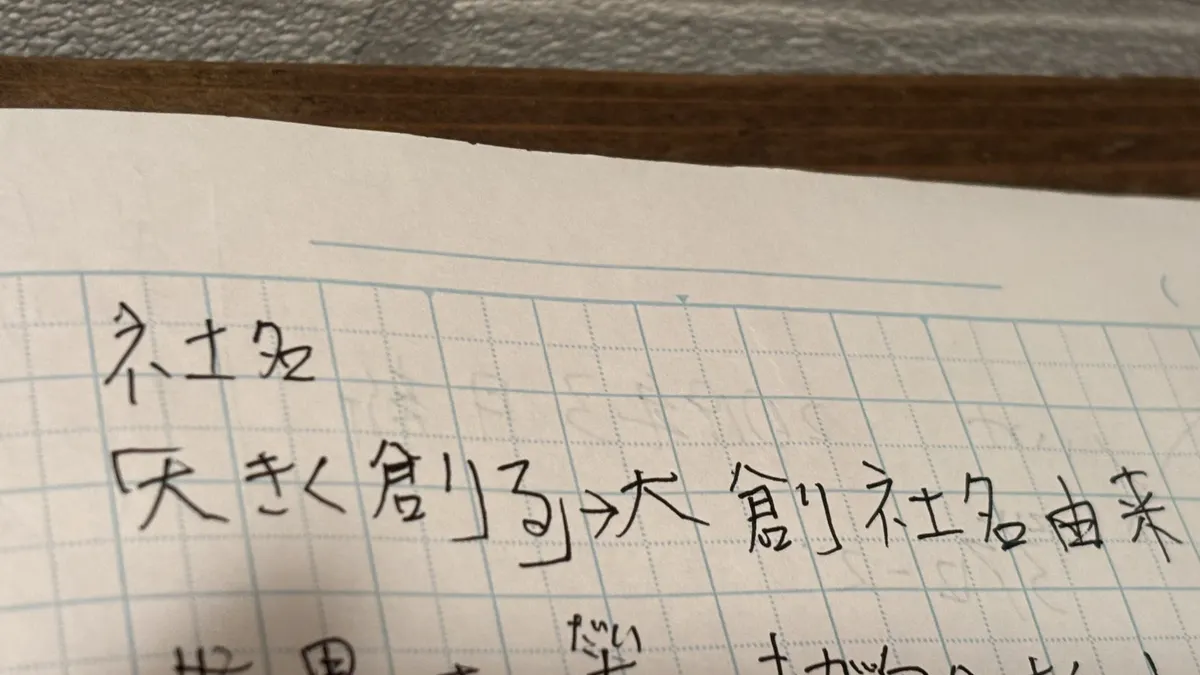 社名
「大きく創る」→大創社名由来
だい